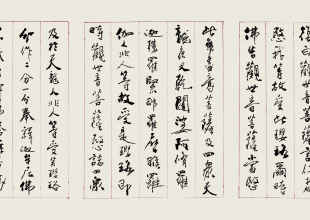 觀世音菩薩言仁者
愍我等故受此瓔珞爾時
佛告觀世音菩薩當愍
此無盡意菩薩及四眾天
龍夜叉乾闥婆阿修羅
迦樓羅緊那羅摩睺羅
伽人非人等故受是瓔珞即
時觀世音菩薩愍諸四眾
及於天龍人非人等受其瓔珞
分作二分一分奉釋迦牟尼佛